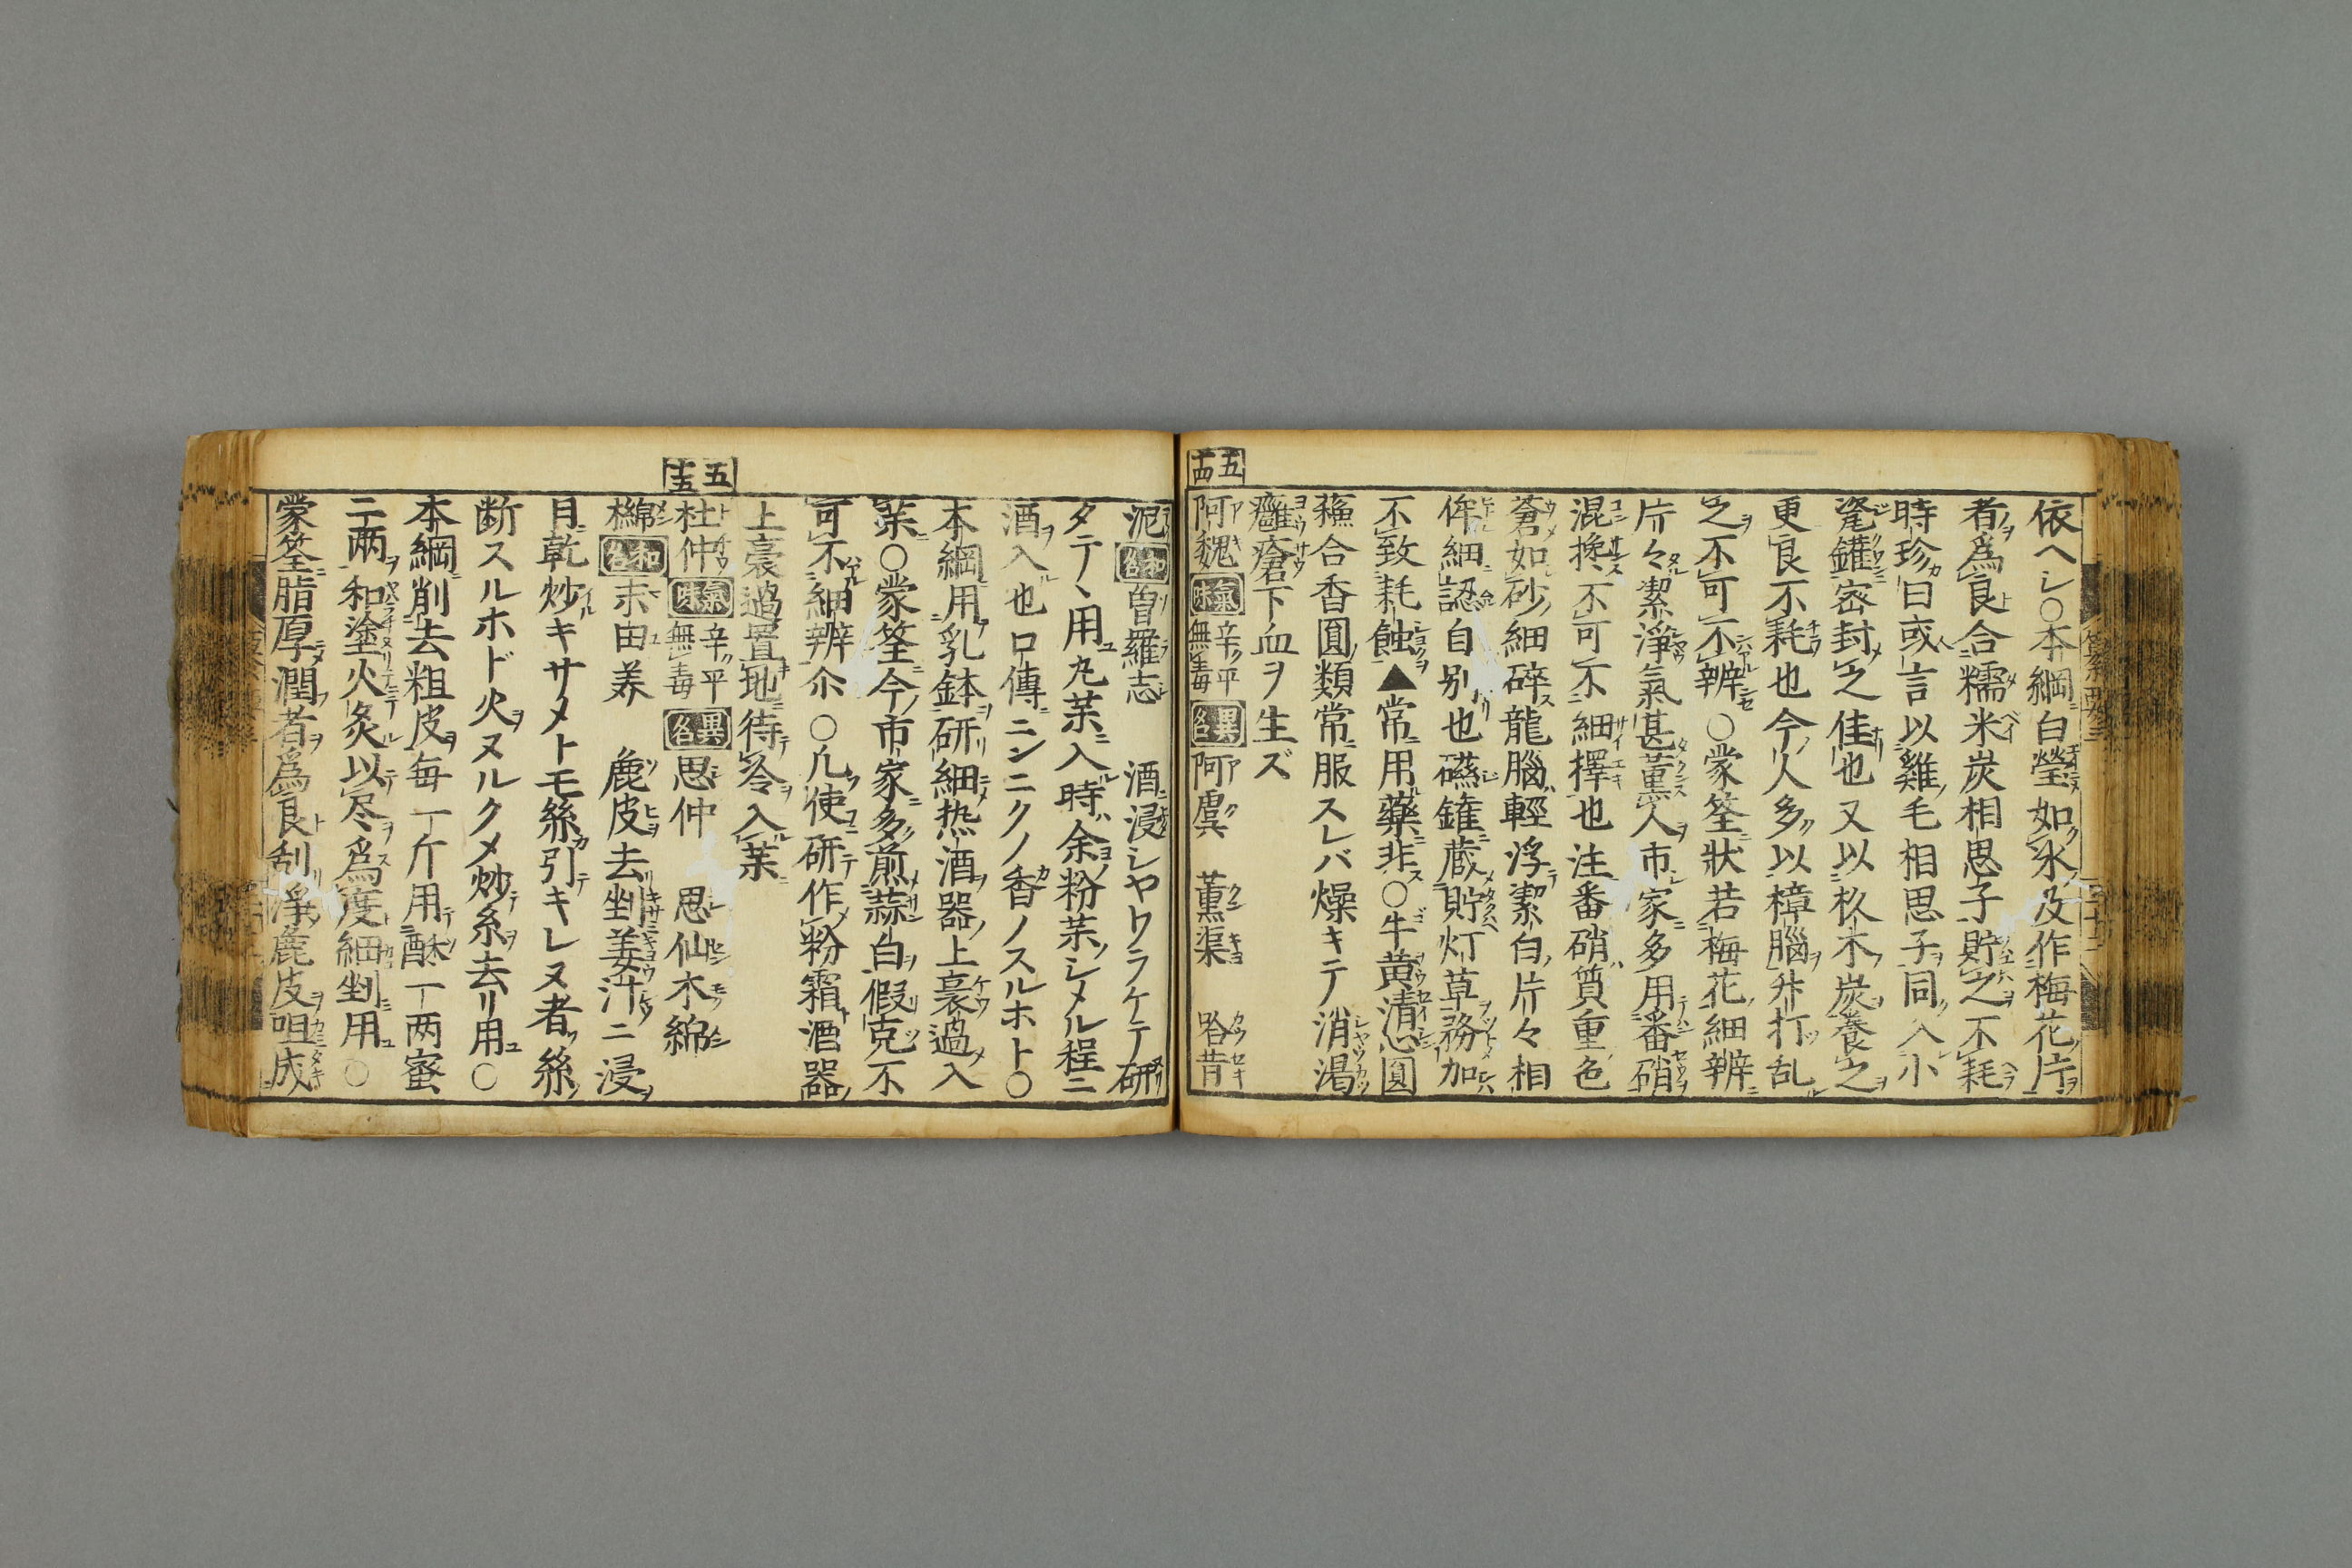 依ヘシ○本綱白瑩如氷及作梅花片
者爲良合糯米炭相思子貯之不耗
時珍曰或言以雞毛相思子同入小
瓷鑵密封之佳也又以杦木炭養之
更良不耗也今人多以樟腦升打乱
之不可不辨○蒙筌狀若梅花細辨
片々潔淨氣甚薫人市家多用番硝
混攙不可不細擇也注番硝質重色
蒼如砂細碎龍腦輕浮潔白片々相
侔細認自別也礠鑵蔵貯灯草務加
不致耗蝕▲常用藥非○牛黄清心圓
蘓合香圓類常服スレバ燥キテ消渇
癰瘡下血ヲ生ズ
五十四
阿魏 氣味 辛平無毒 異名 阿虞 薫渠 哈昔
泥 和名 曽羅志 酒浸シヤワラケテ研
タテヽ用丸茉入時余粉茉シメル程ニ
酒入也口傳ニンニクノ香ノスルホト○
本綱用乳鉢研細热酒器上裛過入
茉○蒙筌今市家多煎蒜白假克不
可不細辨尒○凡使研作粉霜酒器
上裛過置地待冷入茉
五十五
杜仲 氣味 辛平無毒 異名 思仲 思仙木綿
檰 和名 末由美 麁皮去剉姜汁ニ浸
日乾炒キサメトモ絲引キレヌ者絲
断スルホド火ヌルクメ炒糸去リ用○
本綱削去粗皮每一斤用酥一两蜜
二两和塗火炙以尽爲度細剉用○
蒙筌脂厚潤者爲良刮淨麁皮咀成